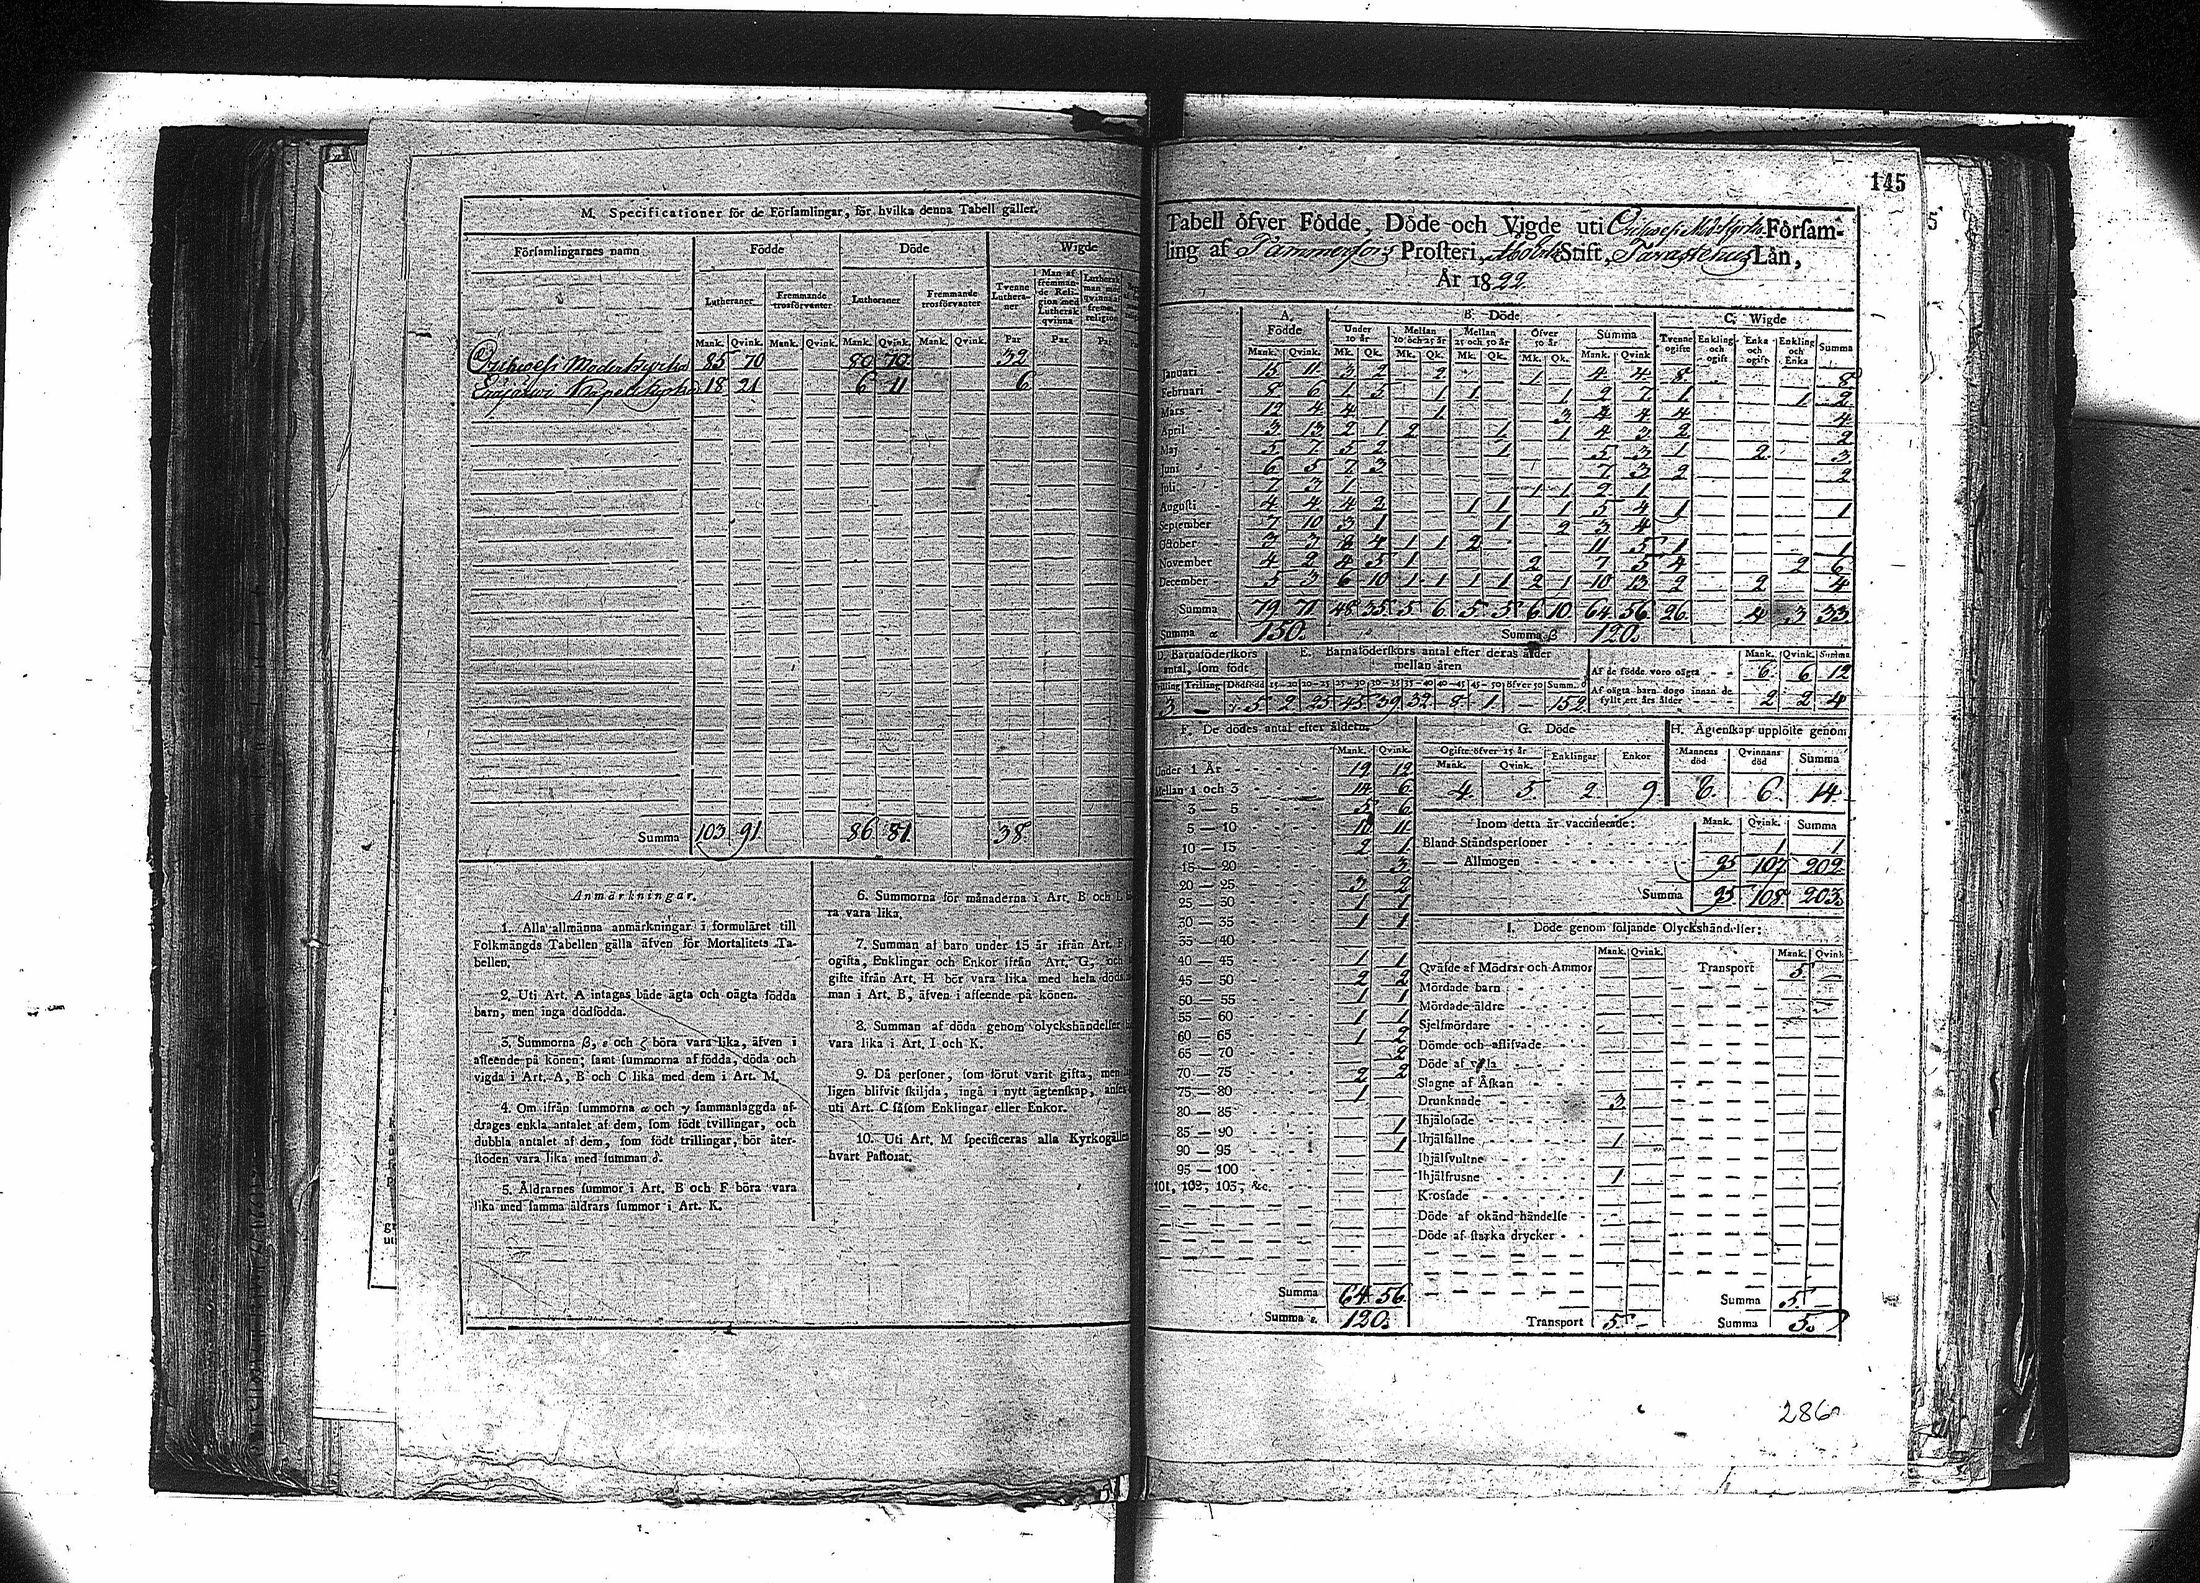 M. Specificationer för de Församlingar, för hvilka denna Tabell gäller.
Församlingarnes namn Födde Döde Wigde
Lutheraner Fremmande trosförvanter Lutheraner Fremmande trosförvanter Tvenne Lutheraner Man af fremmande Religion med Luthersk qvinna Luthersk man med qvinna af fremm. religion
Mank. Qvink. Mank. Qvink. Mank. Qvink. Mank. Qvink. Par Par Par
Orihwesi Moderkyrka 85 70 80 70 32
Eräjärwi Kapellkyrka 18 21 6 11 6
Summa 103 91 86 81 38
Anmärkningar.
1. Alla allmänna anmärkningar i formuläret till
Folkmängds Tabellen gälla äfven för Mortalitets Ta-
bellen.
2. Uti Art. A intagas både ägta och oägta födda
barn, men inga dödfödda.
3. Summorna β, ε och ζ böra vara lika, äfven i
afseende på könen; samt summorna af födda, döda och
vigda i Art. A, B och C lika med dem i Art. M.
4. Om ifrån summorna α och γ sammanlaggda af-
drages enkla antalet af dem, som födt tvillingar, och
dubbla antalet af dem, som födt trillingar, bör åter-
stoden vara lika med summan δ.
5. Åldrarnes summor i Art. B och F böra vara
lika med samma åldrars summor i Art. K.
6. Summorna för månaderna i Art. B och L
ra vara lika.
7. Summan af barn under 15 år ifrån Art. F
ogifta, Enklingar och Enkor ifrån Art. G, och
gifte ifrån Art. H bör vara lika med hela döda
man i Art. B, äfven i afseende på könen.
8. Summan af döda genom olyckshändelser
vara lika i Art. I och K.
9. Då personer, som förut varit gifta, men
ligen blifvit skiljda, ingå i nytt ägtenskap, anses
uti Art. C såsom Enklingar eller Enkor.
10. Uti Art. M specificeras alla Kyrkogällen
hvart Pastorat.
145
Tabell öfver Födde, Döde och Vigde uti Orihwesi Församling
af Tammerfors Prosteri, Åbo Stift, Tavastehus Län,
År 1822
A. Födde B. Döde C. Wigde
Under 10 år Mellan 10 och 25 år Mellan 25 och 50 år Öfver 50 år Summa Tvenne ogifte Enkling och ogift Enka och ogift Enkling och Enka Summa
Mank. Qvink. Mk. Qk. Mk. Qk. Mk. Qk. Mk. Qk. Mank. Qvink.
Januari 15 11 3 2 2 1 4 4 8 8
Februari 8 6 1 5 1 1 1 2 7 1 1 2
Mars 12 4 4 1 3 4 4 4 4
April 3 13 2 1 2 1 1 4 3 2 2
Maj 5 7 5 2 1 5 3 1 2 3
Juni 6 5 7 3 7 3 2 2
Juli 7 3 1 1 1 2 1
Augusti 4 4 4 2 1 1 1 5 4 1 1
September 7 10 3 1 1 2 3 4
October 3 3 8 4 1 1 2 11 5 1 1
November 4 2 4 5 1 2 7 5 4 2 6
December 5 3 6 10 1 1 1 1 2 1 10 13 2 2 4
Summa 79 71 48 35 5 6 5 5 6 10 64 56 26 4 3 33
Summa α 150. Summa β 120.
D. Barnaföderskors antal, som födt
Tvilling Trilling Dödfödd
3 — 5
E. Barnaföderskors antal efter deras ålder mellan åren
15—20 20—25 25—30 30—35 35—40 40—45 45—50 öfver 50 Summ. δ
2 25 45 39 32 8 1 — 152
Mank. Qvink. Summa
Af de födde voro oägta 6 6 12
Af oägta barn dogo innan de fyllt ett års ålder 2 2 4
F. De dödes antal efter åldern
Mank. Qvink.
Under 1 År 19 12
Mellan 1 och 3 14 6
3 — 5 5 6
5 — 10 10 11
10 — 15 2 1
15 — 20 3
20 — 25 3 2
25 — 30 1 1
30 — 35 1 1
35 — 40
40 — 45 1 1
45 — 50 2 2
50 — 55 1 1
55 — 60 1 1
60 — 65 1 2
65 — 70 2
70 — 75 2 2
75 — 80 1
80 — 85
85 — 90 1
90 — 95 1
95 — 100
101, 102, 103, &c.
Summa 64 56
Summa ε. 120.
G. Döde
Ogifte öfver 15 år Enklingar Enkor
Mank. Qvink.
4 5 2 9
H. Ägtenskap upplöste genom
Mannens död Qvinnans död Summa
8. 6. 14.
Inom detta år vaccinerade: Mank. Qvink. Summa
Bland Ståndspersoner 1 1
— — Allmogen 95 107 202
Summa 95 108 203
I. Döde genom följande Olyckshändelser:
Mank. Qvink. Mank. Qvink.
Qväfde af Mödrar och Ammor Transport 5
Mördade barn
Mördade äldre
Sjelfmördare
Dömde och aflifvade
Döde af våda
Slagne af Åskan
Drunknade 3
Ihjälosade
Ihjälfallne 1
Ihjälsvultne
Ihjälfrusne 1
Krossade
Döde af okänd händelse
Döde af starka drycker
Summa 5. —
Transport 5 - Summa 5.
286